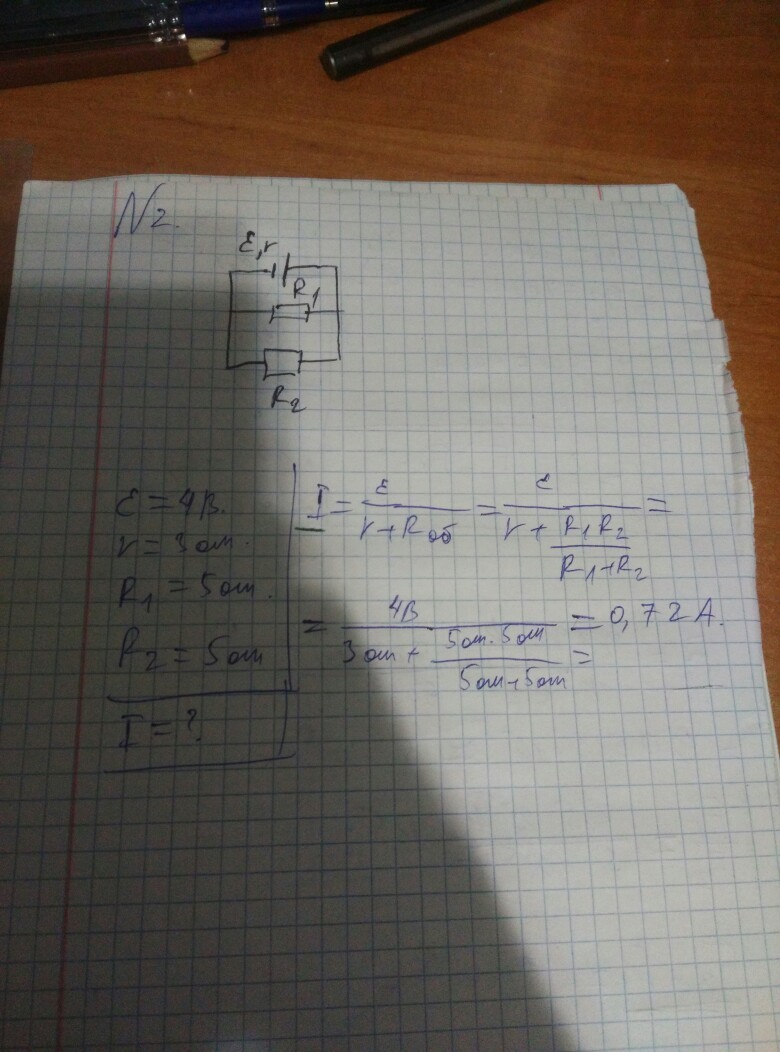 N2.
ε, r
R1
R2
ε = 4В.
r = 3 ом.
R1 = 5 ом.
R2 = 5 ом
I = ?
I = ε / (r + Rоб) = ε / (r + R1 R2 / (R1 + R2)) =
= 4В / (3 ом + 5 ом · 5 ом / (5 ом + 5 ом)) = = 0,72 А.